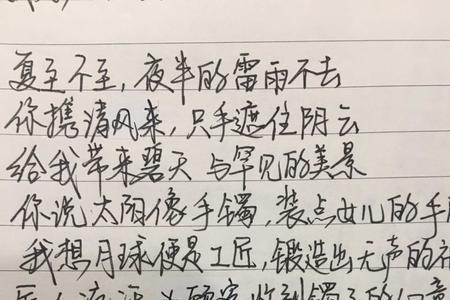 夏至不至，夜半的雷雨不去
你携清风来，只手遮住阴云
给我带来碧天与罕见的美景
你说太阳像手镯，装点女儿的手
我想月球便是工匠，锻造出无声的